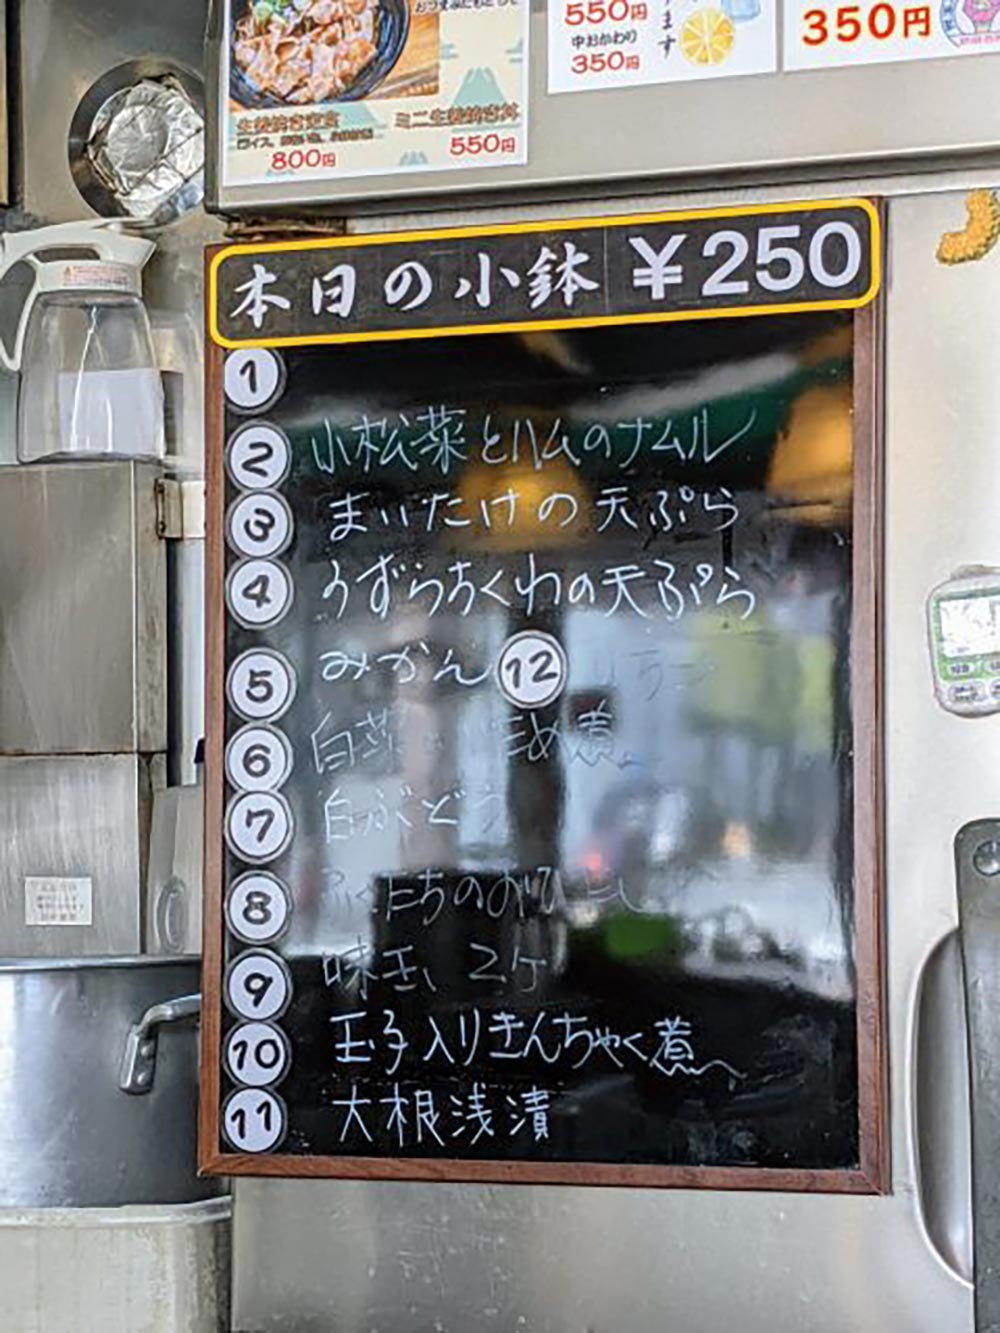 800円
ミニ生姜焼き丼
550円
550円
中おかわり
350円
ます
350円
本日の小鉢 ¥250
1
2 小松菜とハムのナムル
3 まいたけの天ぷら
4 うずらちくわの天ぷら
5 みかん 12
6 白菜 煮
7 白ぶどう
8 のおひたし
9 味玉、2ケ
10 玉子入りきんちゃく煮
11 大根浅漬